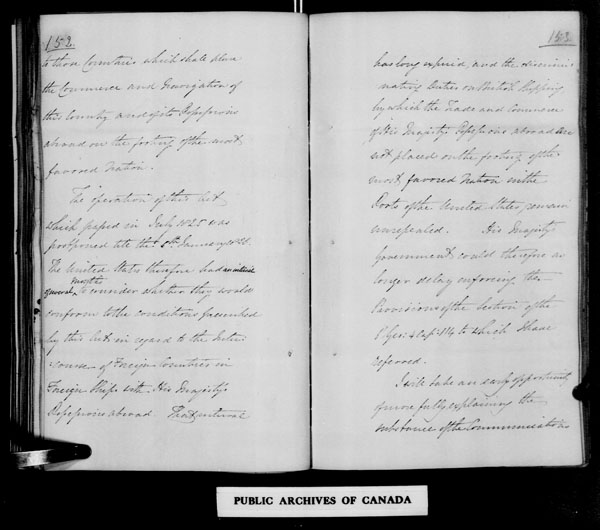 152.
to those Countries which shall place
the Commerce and Navigation of
this Country and of its Possessions
abroad on the footing of the most
favored Nation.
The operation of this Act
which passed in July 1825 was
postponed till the 5th January 1826.
The United States therefore had an interval
months
several to consider whether they would
conform to the conditions prescribed
by this Act in regard to the Inter-
course of Foreign Countries in
Foreign Ships with His Majesty's
Possessions abroad. That interval
153
has long expired, and the discrimi-
nating Duties on British Shipping
by which the Trade and Commerce
of His Majesty's Possessions abroad are
not placed on the footing of the
most favored Nation in the
Ports of the United States, remain
unrepealed. His Majesty's
Government could therefore no
longer delay enforcing the
Provisions of the Section of the
6 Geo: 4 Cap: 114 to which I have
referred.
I will take an early opportunity
of more fully explaining the
substance of the Communications
PUBLIC ARCHIVES OF CANADA